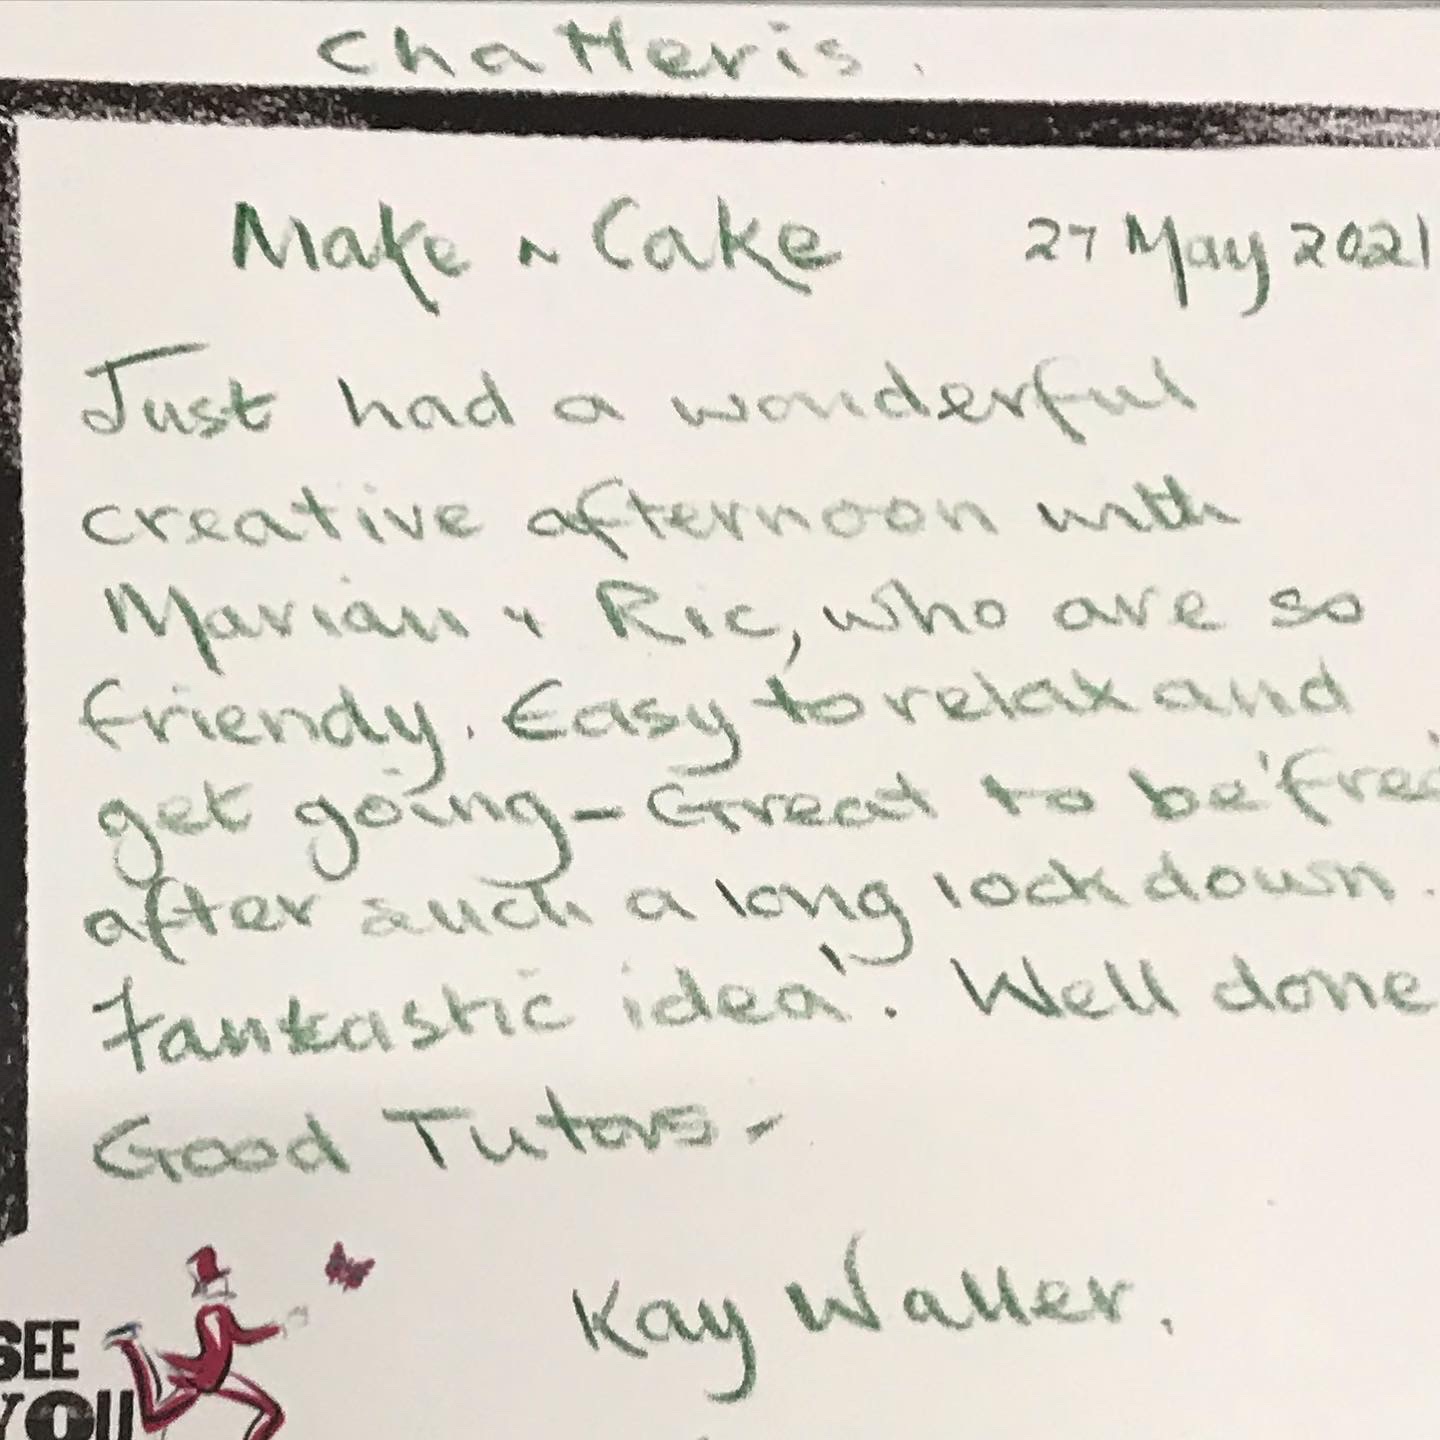 Chatteris.
Make n Cake 27 May 2021
Just had a wonderful
creative afternoon with
Marian & Ric, who are so
friendly. Easy to relax and
get going - Great to be 'free'
after such a long lockdown.
Fantastic idea'. Well done
Good Tutors -
Kay Waller.
SEE
YOU